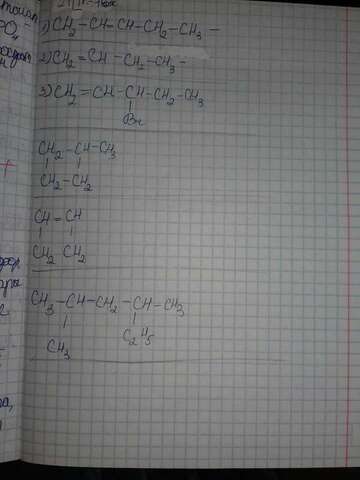 1) CH₂ – CH – CH – CH₂ – CH₃ –
2) CH₂ = CH – CH₂ – CH₃ –
3) CH₂ = CH – CH – CH₂ – CH₃
Br
CH₂ – CH – CH₃
CH₂ – CH₂
CH = CH
CH₂ CH₂
CH₃ – CH – CH₂ – CH – CH₃
CH₃ C₂H₅